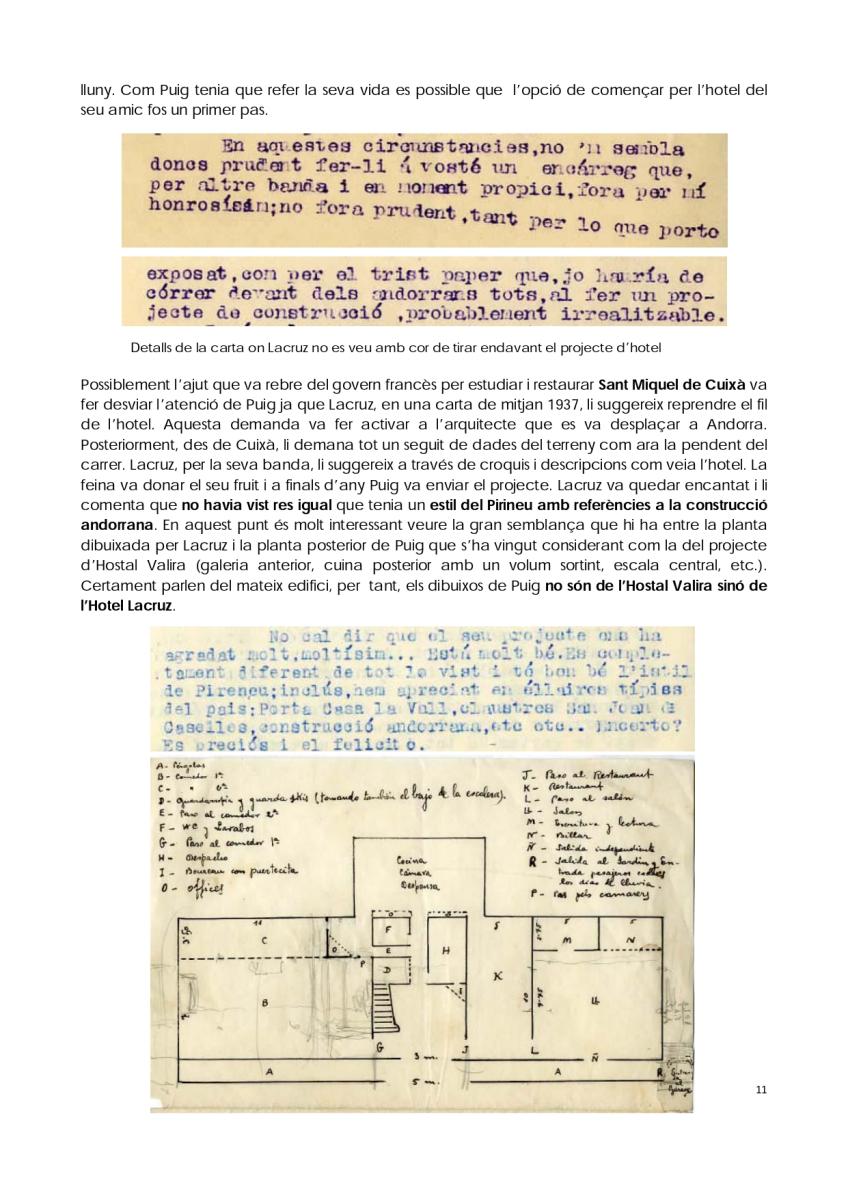 lluny. Com Puig tenia que refer la seva vida es possible que l’opció de començar per l’hotel del
seu amic fos un primer pas.
En aquestes circunstancies,no 'm sembla
doncs prudent fer-li á vosté un encárreg que,
per altre banda i en moment propici,fora per mí
honrosísim;no fora prudent,tant per lo que porto
exposat,com per el trist paper que,jo hauría de
córrer devant dels andorrans tots,al fer un pro-
jecte de construcció ,probablement irrealitzable.
Detalls de la carta on Lacruz no es veu amb cor de tirar endavant el projecte d’hotel
Possiblement l’ajut que va rebre del govern francès per estudiar i restaurar Sant Miquel de Cuixà va
fer desviar l’atenció de Puig ja que Lacruz, en una carta de mitjan 1937, li suggereix reprendre el fil
de l’hotel. Aquesta demanda va fer activar a l’arquitecte que es va desplaçar a Andorra.
Posteriorment, des de Cuixà, li demana tot un seguit de dades del terreny com ara la pendent del
carrer. Lacruz, per la seva banda, li suggereix a través de croquis i descripcions com veia l’hotel. La
feina va donar el seu fruit i a finals d’any Puig va enviar el projecte. Lacruz va quedar encantat i li
comenta que no havia vist res igual que tenia un estil del Pirineu amb referències a la construcció
andorrana. En aquest punt és molt interessant veure la gran semblança que hi ha entre la planta
dibuixada per Lacruz i la planta posterior de Puig que s’ha vingut considerant com la del projecte
d’Hostal Valira (galeria anterior, cuina posterior amb un volum sortint, escala central, etc.).
Certament parlen del mateix edifici, per tant, els dibuixos de Puig no són de l’Hostal Valira sinó de
l’Hotel Lacruz.
No cal dir que el seu projecte ens ha
agradat molt,moltísim... Está molt bé.Es comple-
tament diferent de tot lo vist i té bon bé l'istil
de Pireneu;inclús,hem apreciat en éll aires típics
del pais;Porta Casa la Vall,claustres San Joan de
Caselles,construcció andorrana,etc etc.. Encerto?
Es preciós i el felicito.
A - Pérgolas
B - Comedor 1ª
C - " 2ª
D - Guardarropía y guarda skis (tomando también el bajo de la escalera).
E - Paso al comedor 2ª
F - WC y Lavabos
G - Paso al comedor 1ª
H - Despacho
I - Bureau con puertecita
O - offices
J - Paso al Restaurant
K - Restaurant
L - Paso al salón
LL - Salon
M - Escritura y lectura
N - Billar
Ñ - Salida independiente
R - Salida al Jardin y En-
trada pasajeros
los dias de lluvia.
P - Pas pels camarers
Cocina
Cámara
Despensa
C
F
E
D
O
P
H
I
S
K
M
N
B
LL
G
J
L
3 m.
Ñ
A
A
R
5 m.
11